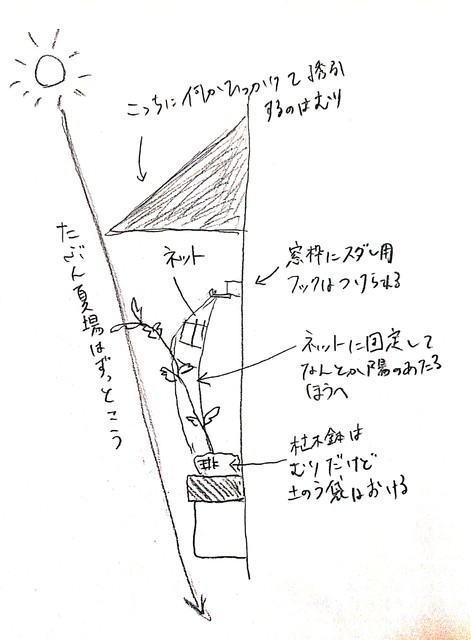 こっちに何かひっかけて誘引
するのはむり
ネット
窓枠にスダレ用
フックはつけられる
たぶん夏場はずっとこう
ネットに固定して
なんとか陽のあたる
ほうへ
植木鉢は
むりだけど
土のう袋はおける